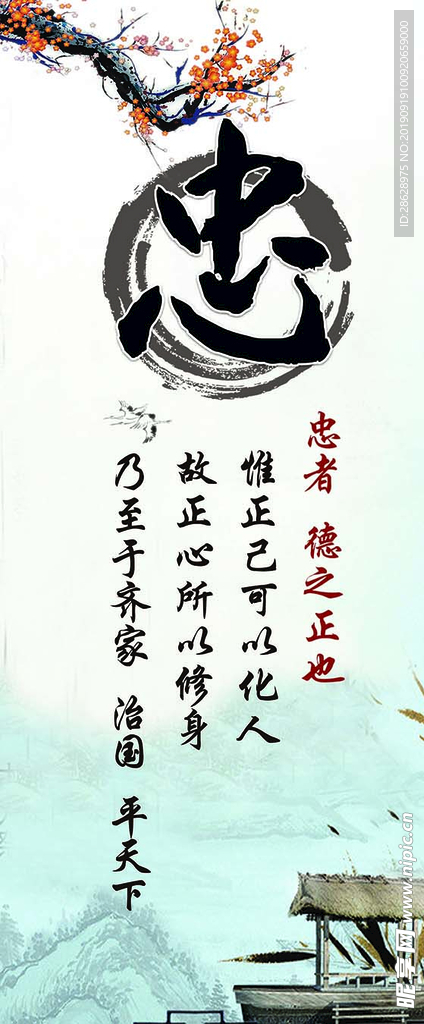 忠
忠者 德之正也
惟正己可以化人
故正心所以修身
乃至于齐家 治国 平天下
ID:28628975 NO:20190919100920659000
昵享网 www.nipic.cn